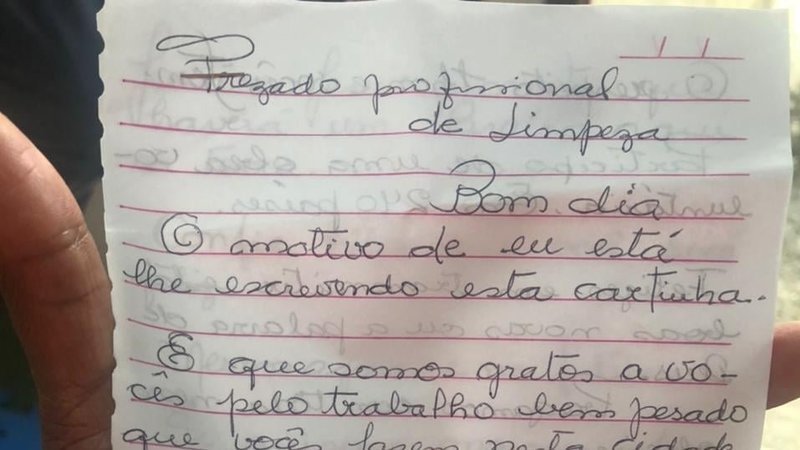 Prezado profissional
de Limpeza
Bom dia
O motivo de eu está
lhe escrevendo esta cartinha.
É que somos gratos a vo-
cês pelo trabalho bem pesado
que vocês fazem nesta cidade